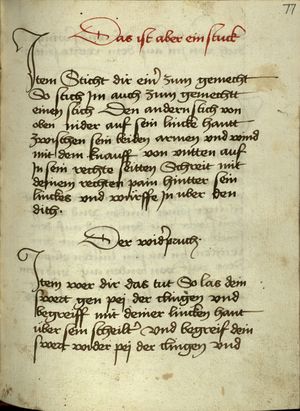 77
Das ist aber ein stuck
Item Sticht dir einer zum gemecht
So stich im auch zum gemechtt
einen stich Den andern stich von
oben nider auf sein lincke hantt
zwischen sein beiden armen und wind
mit dem knauff von vntten auf
In sein rechte seitten Schreit mit
deinem rechten pain hintter sein
linckes vnd wirffe In uber den
dich.
Der widerpruch.
Item wer dir das tut So las dein
swert gen pei der clingen vnd
begreiff mit deiner lincken hant
uber sein scheibl vnd begreif dein
swert wider pei der clingen vnd